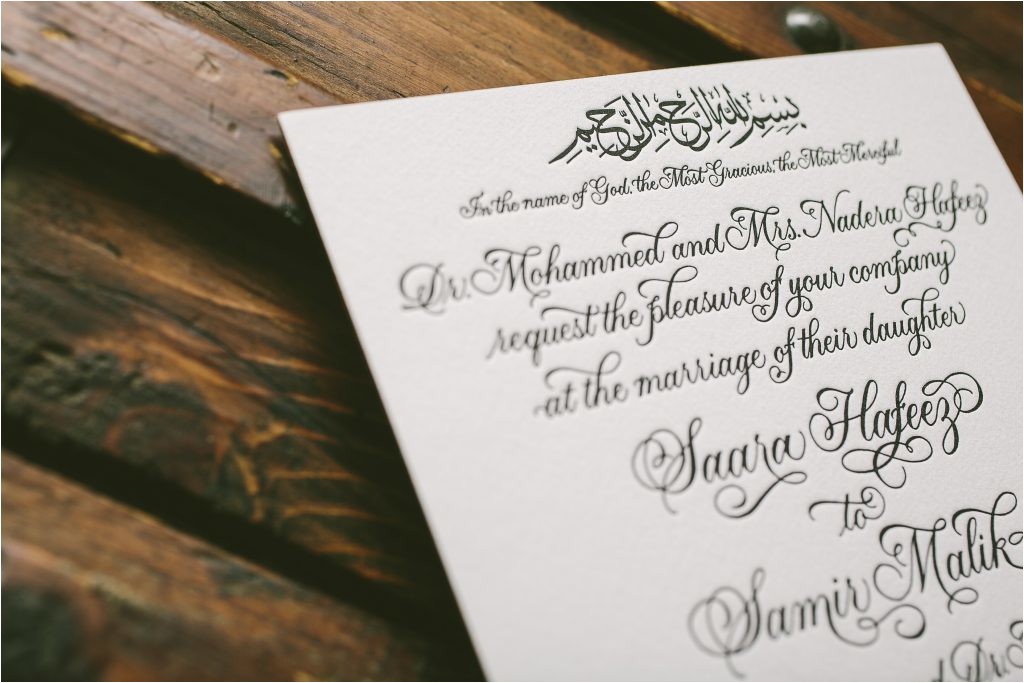 بسم الله الرحمن الرحيم
In the name of God, the Most Gracious, the Most Merciful
Dr. Mohammed and Mrs. Nadera Hafeez
request the pleasure of your company
at the marriage of their daughter
Saara Hafeez
to
Samir Malik
Dr.